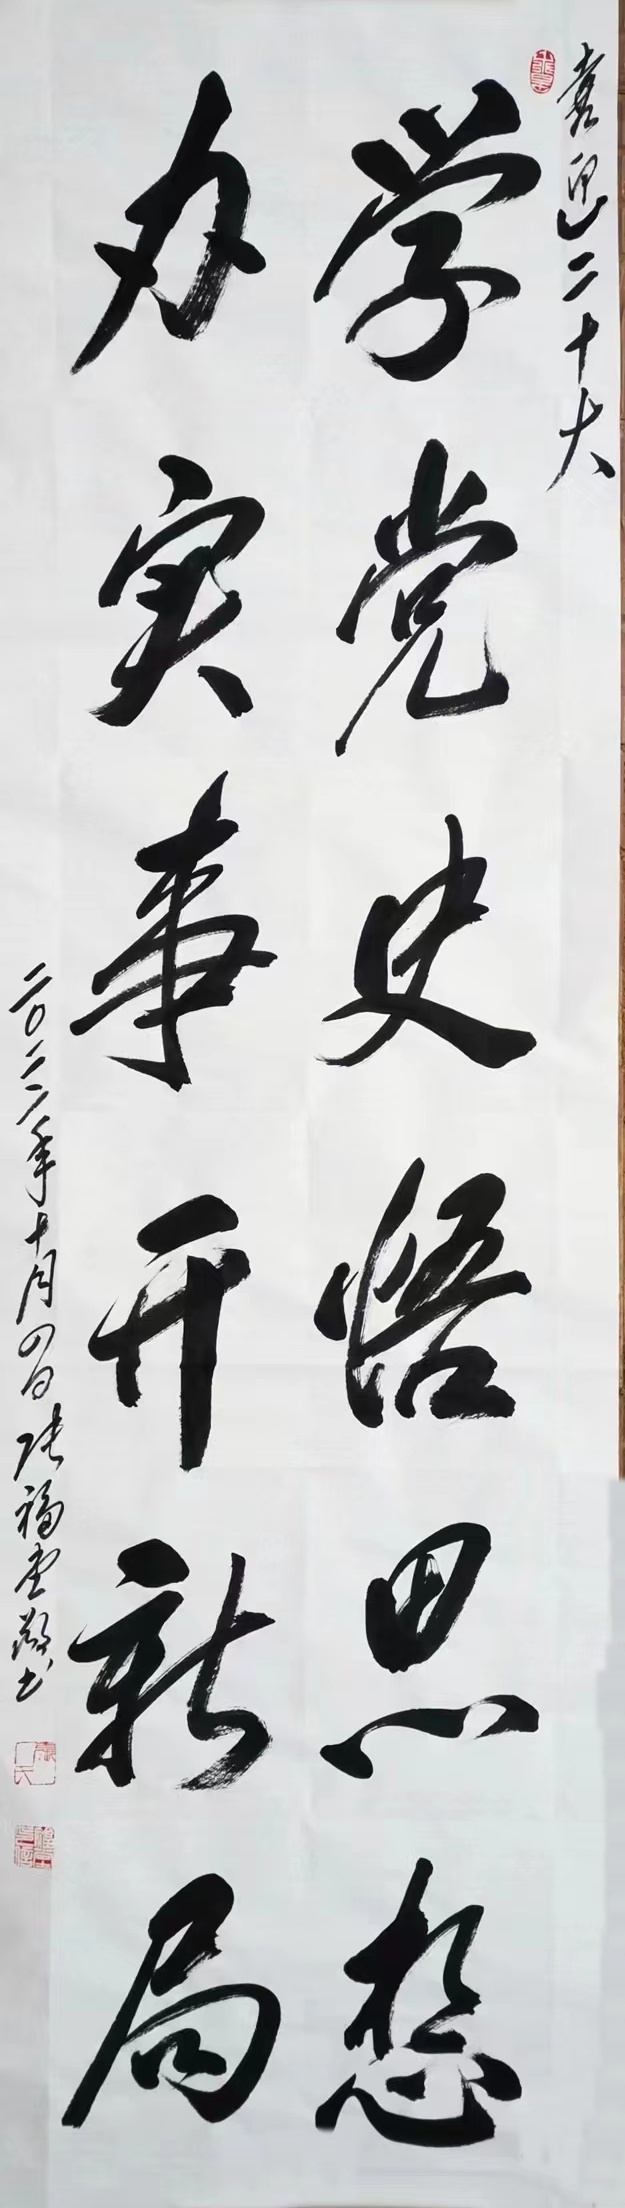 喜迎二十大
学党史悟思想
办实事开新局
二〇二二年十月四日 张福 敬书